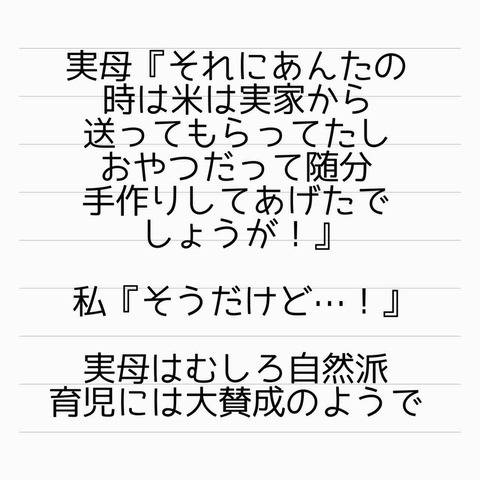 実母『それにあんたの
時は米は実家から
送ってもらってたし
おやつだって随分
手作りしてあげたで
しょうが！』
私『そうだけど…！』
実母はむしろ自然派
育児には大賛成のようで